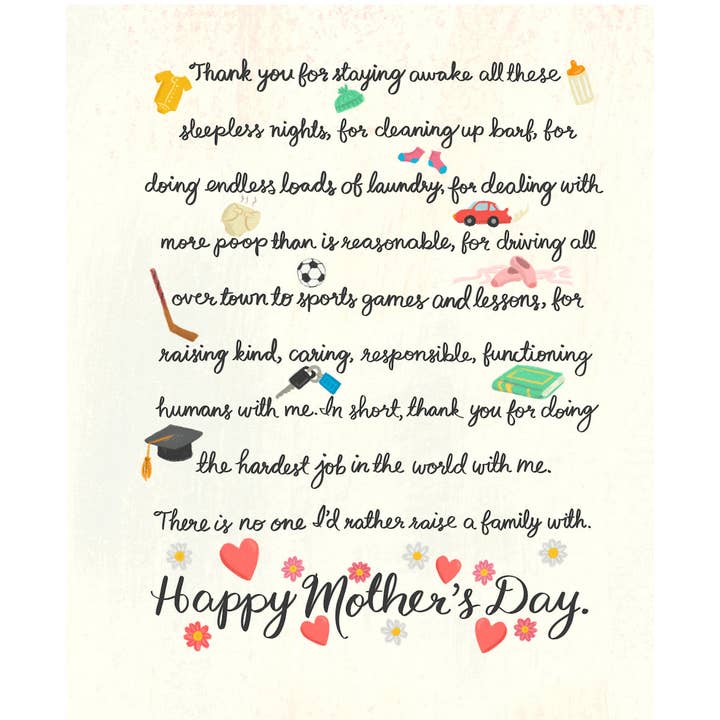 Thank you for staying awake all these
sleepless nights, for cleaning up barf, for
doing endless loads of laundry, for dealing with
more poop than is reasonable, for driving all
over town to sports games and lessons, for
raising kind, caring, responsible, functioning
humans with me. In short, thank you for doing
the hardest job in the world with me.
There is no one I'd rather raise a family with.
Happy Mother's Day.